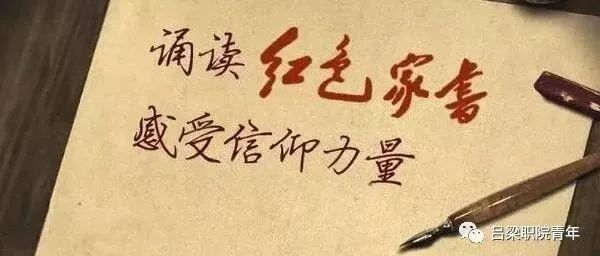 诵读红色家书
感受信仰力量
吕梁职院青年